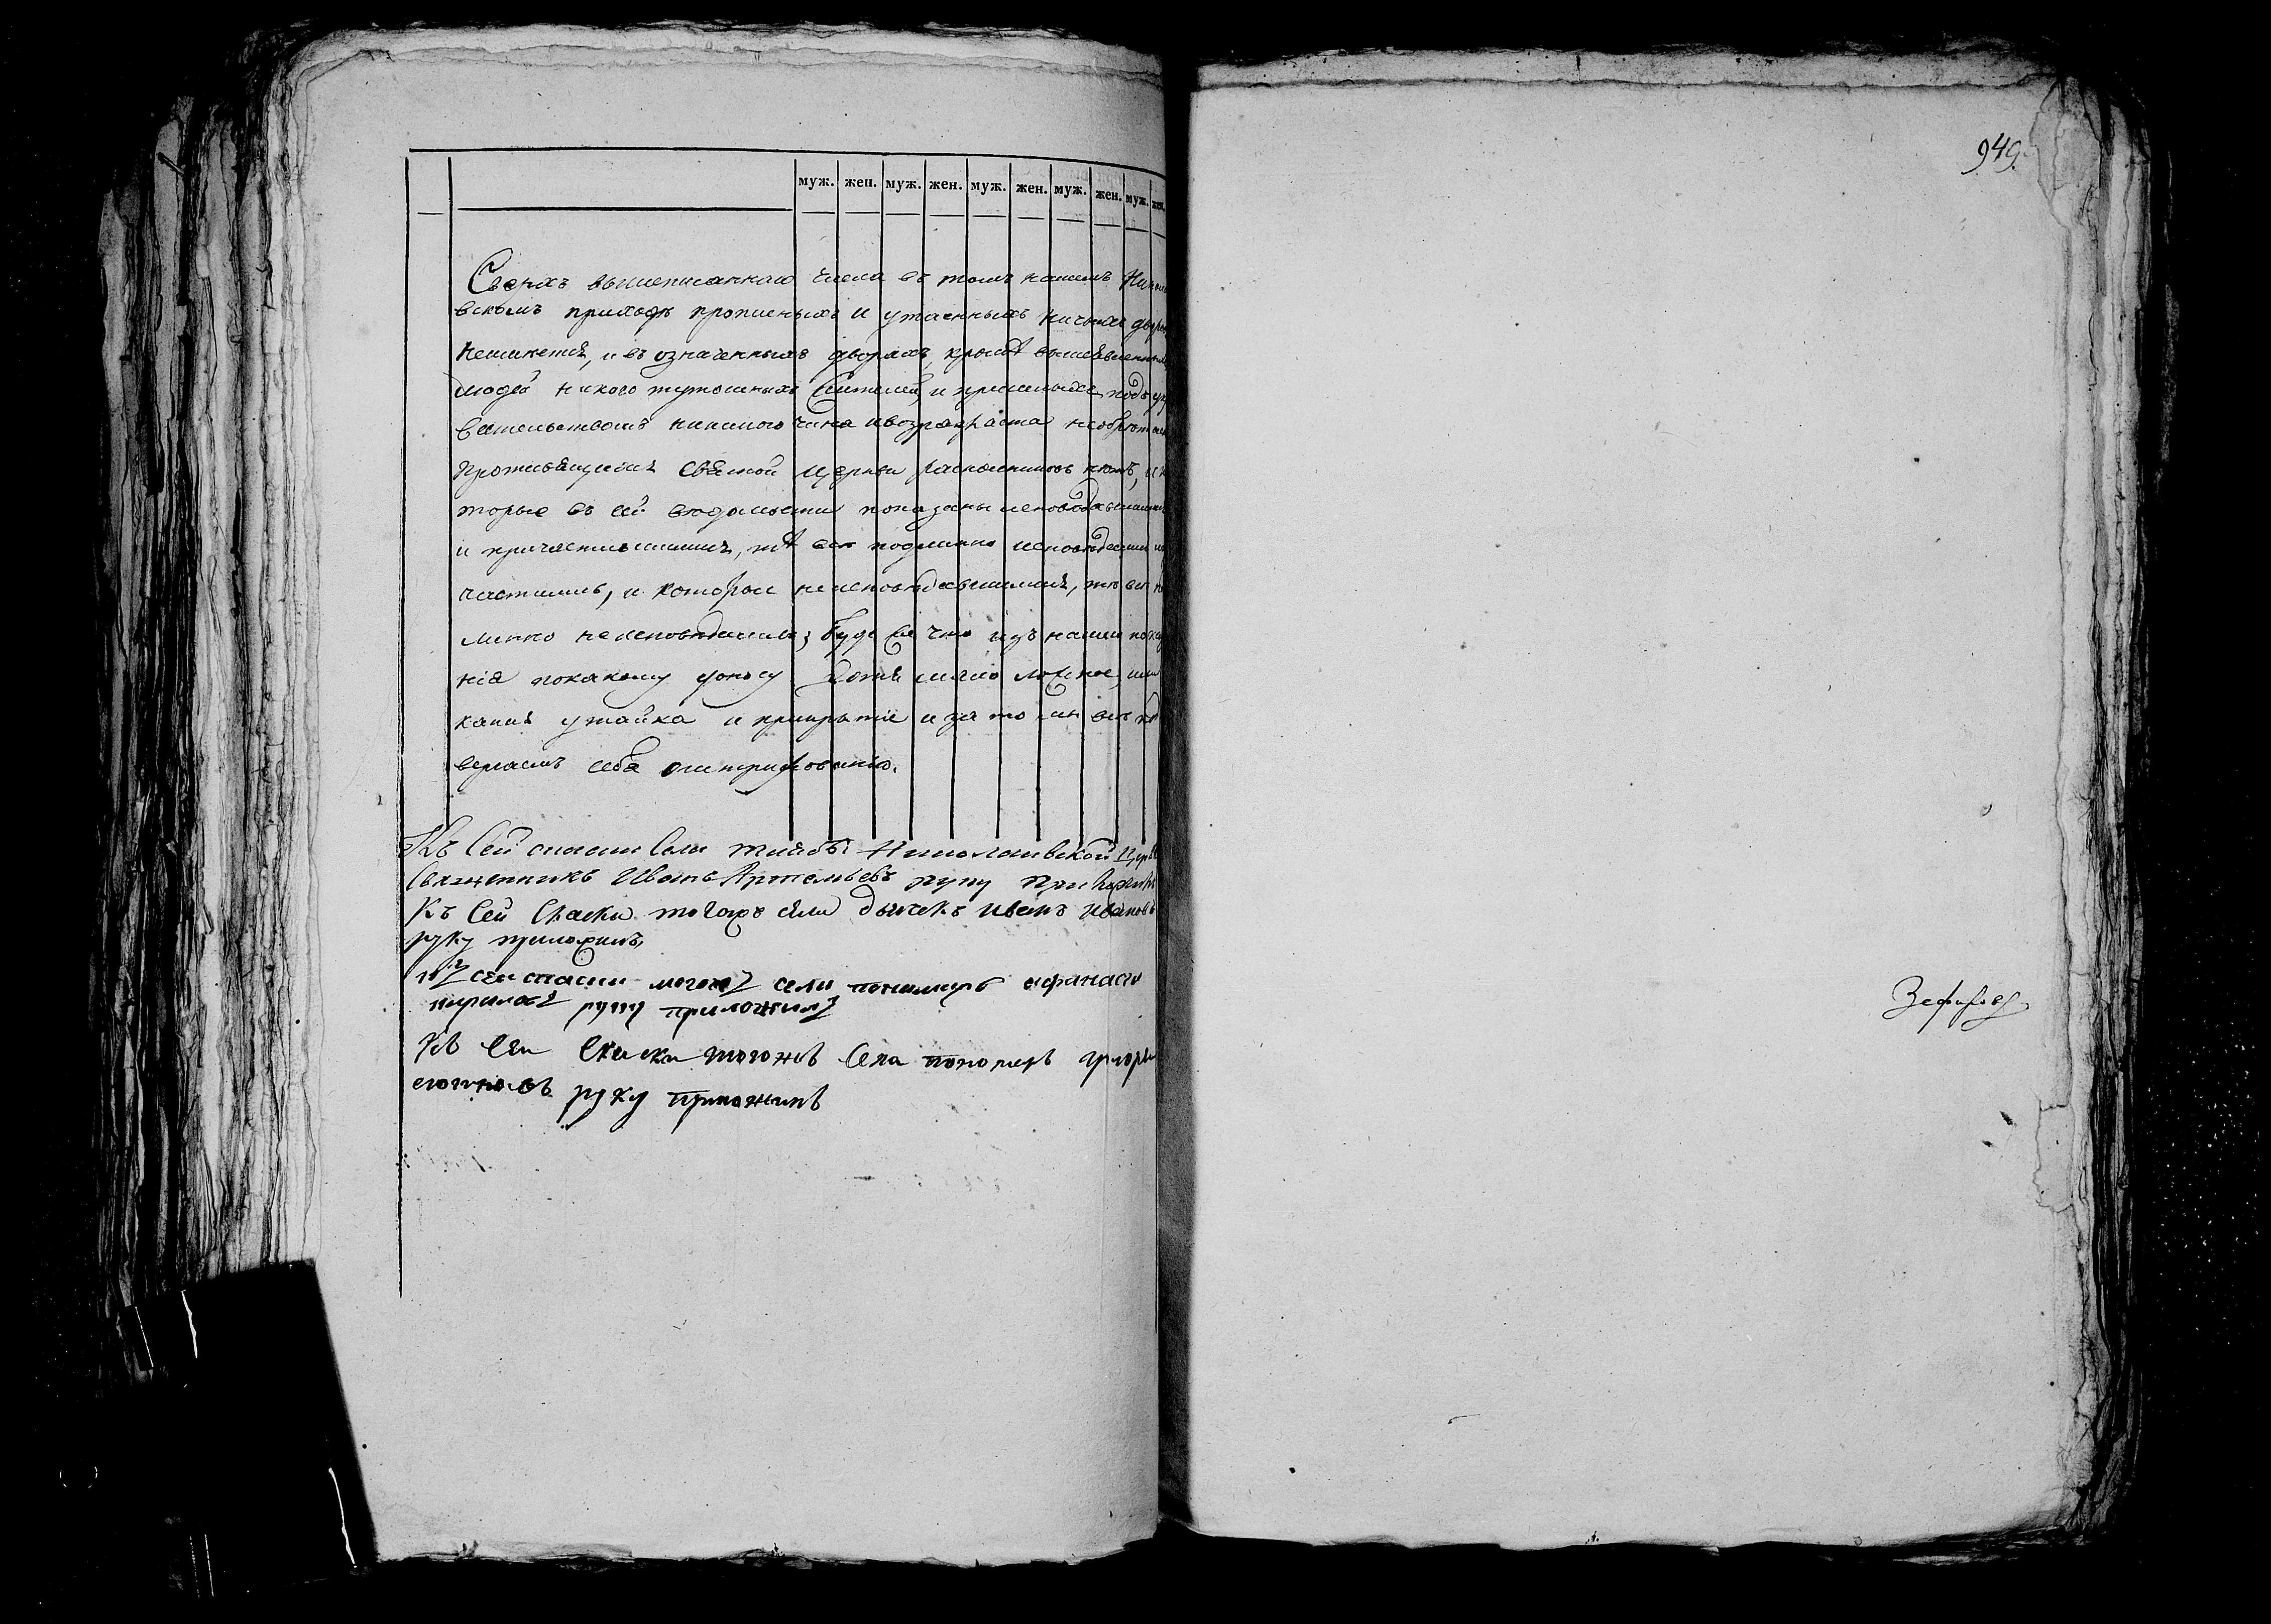 муж. жен. муж. жен. муж. жен. муж. жен. муж. жен.
949.
Сверхъ вышеписаннаго числа въ томъ нашемъ Никола
вскомъ приходѣ прописныхъ и утаенныхъ ничьихъ двор
неимнется, и въ означенныхъ дворахъ, кромѣ вышеявленныхъ
людей никого тутошныхъ жителей, и пришлыхъ подъ ук
вательствомъ никакого чина ивозраста необрѣтает
противящихся святой церкви раскольниковъ нетъ, и ко
торые въ сей вѣдомости показаны исповѣдавшимис
и причастившимися, тѣ всѣ подлинно исповѣдались и
частились, и которые неисповѣдавшимися, тѣ всѣ по
линно неисповѣдались; буде же что изъ нашего показ
нія покакому доносу явится ложное, или
какая утайка и прикрытіе и за то мы всѣ под
вергаемъ себя оштрафованію.
Къ сей сказки села Николаивской церкв
священникъ Иванъ Артемьевъ руку приложилъ
Къ сей скаски тогожъ села дьячекъ иванъ ивановъ
руку приложилъ
къ сеи скаски тогожъ села пономарь афанаси
кириловъ руку приложилъ
Къ сеи скаски тогожъ села пономарь григорьи
руку приложилъ
Зефировъ